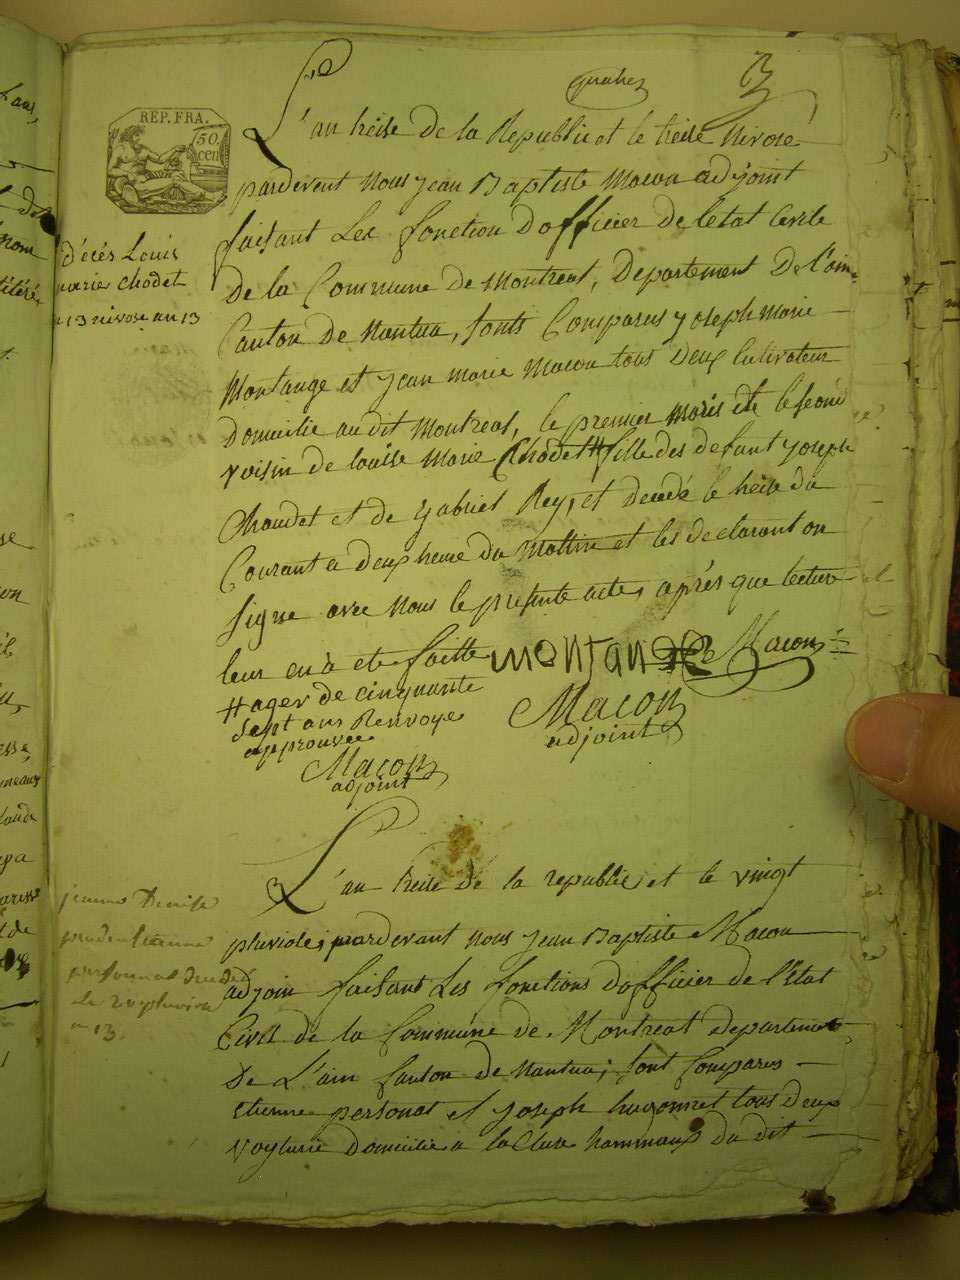 quatre
3
REP. FRA.
50.
cen
L'an treise de la Republic et le treise Nivose
pardevent nous Jean Baptiste Macon adjoint
faisant Les fonction Dofficier de letat Civile
de la Commune de Montreal, Departement De l'ain
Canton De Nantua, sonts Comparus Joseph marie
Montange et Jean marie Macon tous Deux Cultivateur
Domicilie au dit Montreal, le premier maris et le second
voisin de louise Marie Chodet # fille des defunt Joseph
Choudet et de Gabriel Rey, et décedé le treise du
Courant a deux heure du Mattin et les declarant on
signe avec nous le présente acte, après que lecture
leur en à eté faitte
montange Macon
# agev de cinquante
sept ans Renvoye
approuvee
Macon
adjoint
Macon
adjoint
Décés Louis
marie Chodet
13 nivose an 13
L'an treise dé la republic et le vingt
pluviose; pardevant nous Jean Baptiste Macon
adjoin faisant Les fonctions Dofficier de l'Etat
Civil de la Commune de Montreal departement
De L'ain Canton de Nantua; sont Comparus
Etienne personat et Joseph hugonnet tous deux
voyturie Domicilie a la Cluse hammaux du dit
jeanne Denise
prudentienne
personnat décédé
le 20 pluviose
an 13.